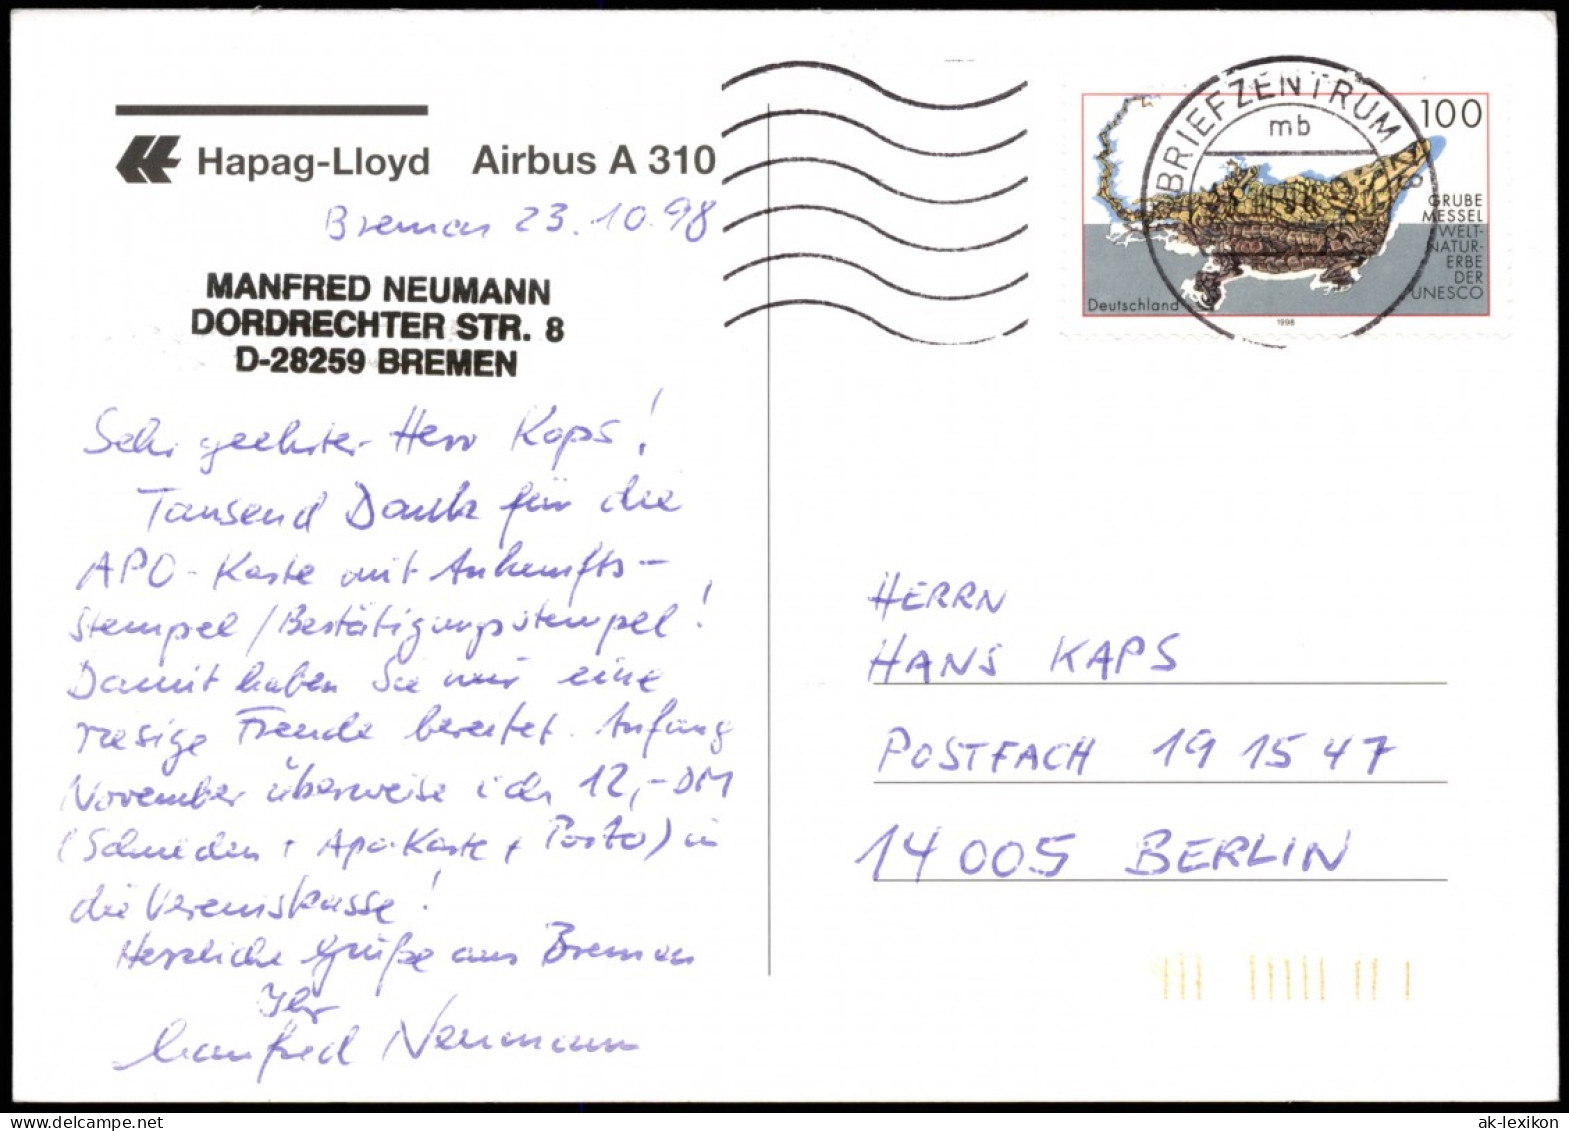 Hapag-Lloyd Airbus A 310
Bremen 23.10.98
MANFRED NEUMANN
DORDRECHTER STR. 8
D-28259 BREMEN
Sehr geehrter Herr Kaps!
Tausend Dank für die
APO-Karte mit Ankunfts-
stempel/Bestätigungsstempel!
Damit haben Sie mir eine
riesige Freude bereitet. Anfang
November überweise ich 12,-DM
(Schneiden + Apo-Karte + Porto) in
die Vereinskasse!
Herzliche Grüße aus Bremen
Ihr
Manfred Neumann
BRIEFZENTRUM
mb
100
GRUBE
MESSEL
WELT-
NATUR-
ERBE
DER
UNESCO
Deutschland
1998
HERRN
HANS KAPS
POSTFACH 19 15 47
14 005 BERLIN
ak-lexikon